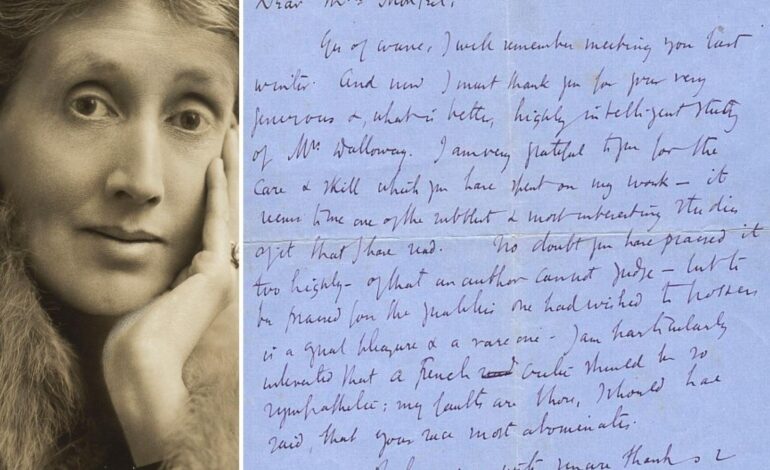 Dear Mrs
Yes of course, I well remember meeting you last
winter. And now I must thank you for your very
generous &, what is better, highly intelligent study
of Mrs Dalloway. I am very grateful to you for the
care & skill which you have spent on my work – it
seems to me one of the subtlest & most interesting studies
of it that I have read. No doubt you have praised it
too highly – of that an author cannot judge – but to
be praised for the qualities one had wished to possess
is a great pleasure & a rare one – I am particularly
interested that a French critic should be so
sympathetic; my faults are those, I should have
said, that your race most abominates.
thanks